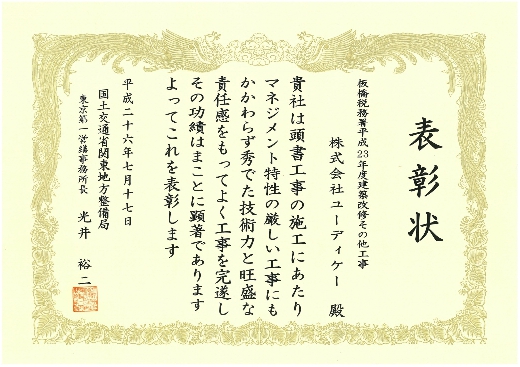 表彰状
板橋税務署平成23年度建築改修その他工事
株式会社ユーディケー 殿
貴社は頭書工事の施工にあたり
マネジメント特性の厳しい工事にも
かかわらず秀でた技術力と旺盛な
責任感をもってよく工事を完遂し
その功績はまことに顕著であります
よってこれを表彰します
平成二十六年七月十七日
国土交通省関東地方整備局
東京第一営繕事務所長 光井 裕二